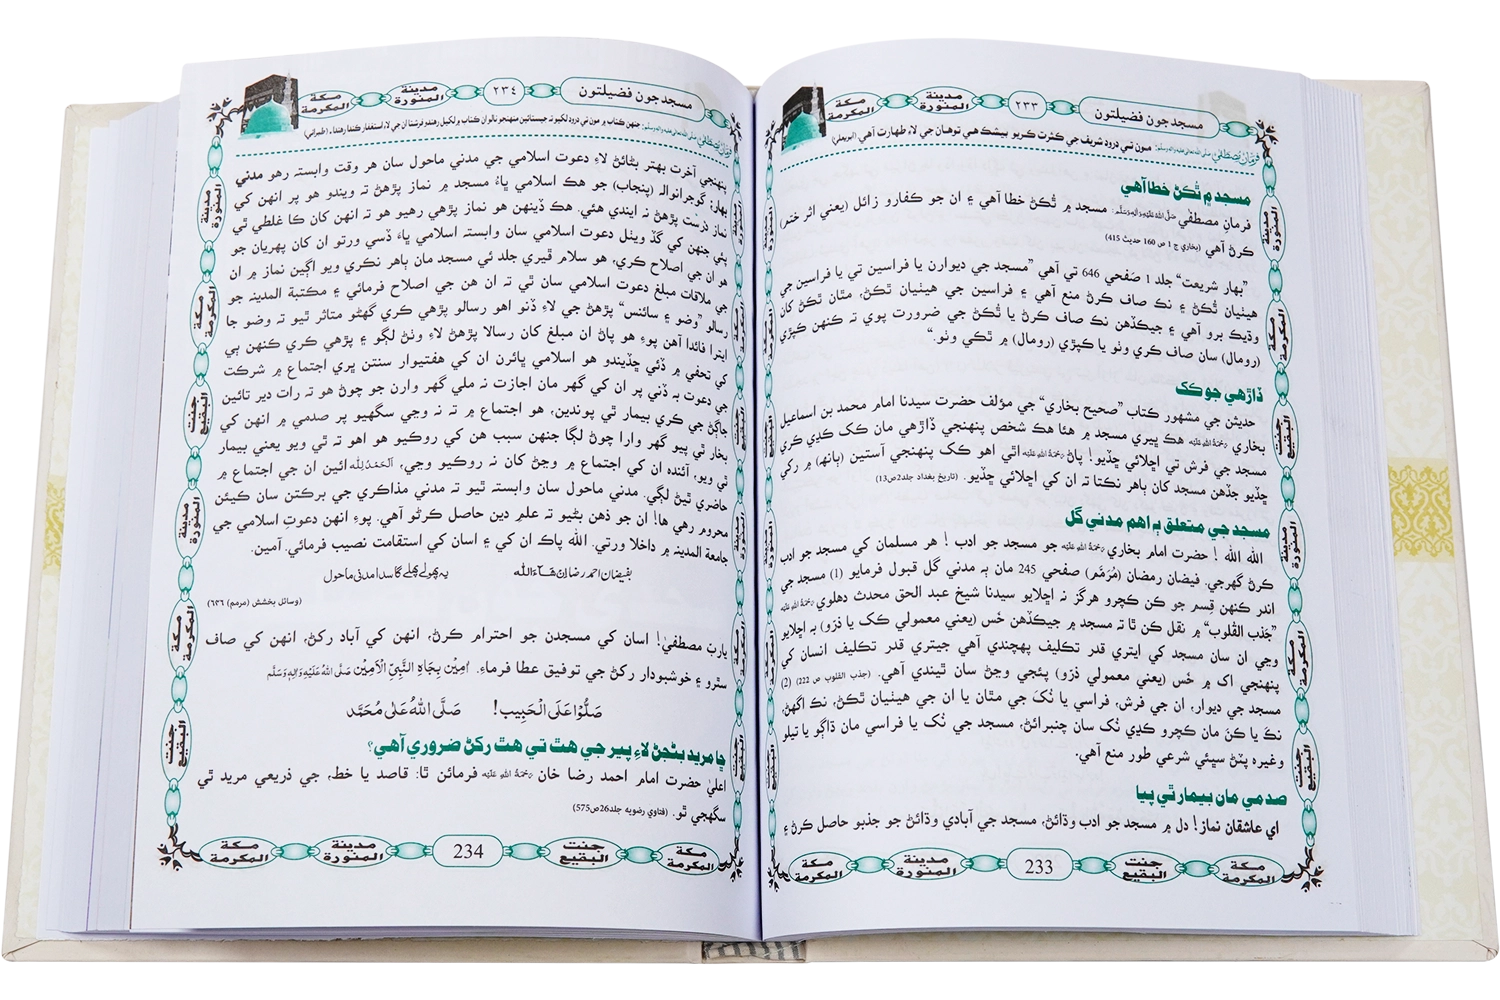 مسجد جون فضيلتون
٢٣٣
مدينة المنورة
مكة المكرمة
فرمانِ مصطفٰي صلى الله تعالى عليه واله وسلم: مون تي درود شريف جي ڪثرت ڪريو بيشڪ هي توهان جي لاءِ طهارت آهي. (ابويعلي)
مسجد ۾ ٿُڪڻ خطا آهي
فرمانِ مصطفٰي صَلَّى اللهُ عَلَيْهِ وَاٰلِهٖ وَسَلَّم: مسجد ۾ ٿُڪڻ خطا آهي ۽ ان جو ڪفارو زائل (يعني اثر ختم)
ڪرڻ آهي (بخاري ج 1 ص 160 حديث 415)
”بهار شريعت“ جلد 1 صَفحي 646 تي آهي ”مسجد جي ديوارن يا فراسين تي يا فراسين جي
هيٺيان ٿُڪڻ ۽ نڪ صاف ڪرڻ منع آهي ۽ فراسين جي هيٺيان ٿڪڻ، مٿان ٿڪڻ کان
وڌيڪ برو آهي ۽ جيڪڏهن نڪ صاف ڪرڻ يا ٿُڪڻ جي ضرورت پوي ته ڪنهن ڪپڙي
(رومال) سان صاف ڪري وٺو يا ڪپڙي (رومال) ۾ ٿُڪي وٺو.“
ڏاڙهي جو ڪک
حديثن جي مشهور ڪتاب ”صحيح بخاري“ جي مؤلف حضرت سيدنا امام محمد بن اسماعيل
بخاري رَحْمَةُ اللهِ عَلَيْه هڪ ڀيري مسجد ۾ هئا هڪ شخص پنهنجي ڏاڙهي مان ڪک ڪڍي ڪري
مسجد جي فرش تي اڇلائي ڇڏيو! پاڻ رَحْمَةُ اللهِ عَلَيْه اٿي اهو ڪک پنهنجي آستين (ٻانهه) ۾ رکي
ڇڏيو جڏهن مسجد کان ٻاهر نڪتا ته ان کي اڇلائي ڇڏيو. (تاريخ بغداد جلد2ص13)
مسجد جي متعلق ٻه اهم مدني گل
الله الله ! حضرت امام بخاري رَحْمَةُ اللهِ عَلَيْه جو مسجد جو ادب ! هر مسلمان کي مسجد جو ادب
ڪرڻ گهرجي. فيضان رمضان (مُرَمَّم) صفحي 245 مان ٻه مدني گل قبول فرمايو (1) مسجد جي
اندر ڪنهن قِسم جو ڪن ڪچرو هرگز نه اڇلايو سيدنا شيخ عبد الحق محدث دهلوي رَحْمَةُ اللهِ عَلَيْه
”جَذب القُلوب“ ۾ نقل ڪن ٿا ته مسجد ۾ جيڪڏهن خَس (يعني معمولي ڪک يا ذرَو) به اڇلايو
وڃي ان سان مسجد کي ايتري قدر تڪليف پهچندي آهي جيتري قدر تڪليف انسان کي
پنهنجي اک ۾ خَس (يعني معمولي ذرَو) پئجي وڃڻ سان ٿيندي آهي. (جذب القلوب ص 222) (2)
مسجد جي ديوار، ان جي فرش، فراسي يا تُک جي مٿان يا ان جي هيٺيان ٿڪڻ، نڪ اگهڻ،
نڪ يا ڪنَ مان ڪچرو ڪڍي تُک سان چنبڙائڻ، مسجد جي تُک يا فراسي مان ڌاڳو يا تيلو
وغيره پٽڻ سڀئي شرعي طور منع آهي.
صدمي مان بيمار ٿي پيا
اي عاشقان نماز! دل ۾ مسجد جو ادب وڌائڻ، مسجد جي آبادي وڌائڻ جو جذبو حاصل ڪرڻ ۽
مكة المكرمة
جنت البقيع
233
مدينة المنورة
مكة المكرمة
مسجد جون فضيلتون
٢٣٤
مدينة المنورة
مكة المكرمة
فرمانِ مصطفٰي صلى الله تعالى عليه واله وسلم: جنهن ڪتاب ۾ مون تي درود لکيو ته جيستائين منهنجو نالو ان ڪتاب ۾ لکيل رهندو فرشتا ان جي لاءِ استغفار ڪندا رهندا. (طبراني)
پنهنجي آخرت بهتر بڻائڻ لاءِ دعوت اسلامي جي مدني ماحول سان هر وقت وابسته رهو مدني
بهار: گوجرانواله (پنجاب) جو هڪ اسلامي ڀاءُ مسجد ۾ نماز پڙهڻ ته ويندو هو پر انهن کي
نماز درست پڙهڻ نه ايندي هئي. هڪ ڏينهن هو نماز پڙهي رهيو هو ته انهن کان ڪا غلطي ٿي
پئي جنهن کي گڏ ويٺل دعوت اسلامي سان وابسته اسلامي ڀاءَ ڏسي ورتو ان کان پهريان جو
هو ان جي اصلاح ڪري، هو سلام ڦيري جلد ئي مسجد مان ٻاهر نڪري ويو اڳين نماز ۾ ان
جي ملاقات مبلغ دعوت اسلامي سان ٿي ته ان هن جي اصلاح فرمائي ۽ مڪتبة المدينه جو
رسالو ”وضو ۽ سائنس“ پڙهڻ جي لاءِ ڏنو اهو رسالو پڙهي ڪري گهڻو متاثر ٿيو ته وضو جا
ايترا فائدا آهن پوءِ هو پاڻ ان مبلغ کان رسالا پڙهڻ لاءِ وٺڻ لڳو ۽ پڙهي ڪري ڪنهن ٻي
کي تحفي ۾ ڏئي ڇڏيندو هو اسلامي ڀائرن ان کي هفتيوار سنتن ڀري اجتماع ۾ شرڪت
جي دعوت به ڏني پر ان کي گهر مان اجازت نه ملي گهر وارن جو چوڻ هو ته رات دير تائين
جاڳڻ جي ڪري بيمار ٿي پوندين، هو اجتماع ۾ ته نه وڃي سگهيو پر صدمي ۾ انهن کي
بخار ٿي پيو گهر وارا چوڻ لڳا جنهن سبب هن کي روڪيو هو اهو ته ٿي ويو يعني بيمار
ٿي ويو، آئنده ان کي اجتماع ۾ وڃڻ کان نه روڪيو وڃي، اَلْحَمْدُ لِلّٰه ائين ان جي اجتماع ۾
حاضري ٿيڻ لڳي. مدني ماحول سان وابسته ٿيو ته مدني مذاڪري جي برڪتن سان ڪيئن
محروم رهي ها! ان جو ذهن بڻيو ته علمِ دين حاصل ڪرڻو آهي. پوءِ انهن دعوتِ اسلامي جي
جامعة المدينه ۾ داخلا ورتي. الله پاڪ ان کي ۽ اسان کي استقامت نصيب فرمائي. آمين.
بفيضانِ احمد رضا اِنْ شَآءَ الله    یہ پھولے پھلے گا سدا مدنی ماحول
(وسائل بخشش (مرمم) ٦٣٦)
ياربِّ مصطفيٰ! اسان کي مسجدن جو احترام ڪرڻ، انهن کي آباد رکڻ، انهن کي صاف
سٿرو ۽ خوشبودار رکڻ جي توفيق عطا فرماءِ. اٰمِيْن بِجَاهِ النَّبِيِّ الْاَمِيْن صَلَّى اللهُ عَلَيْهِ وَاٰلِهٖ وَسَلَّم
صَلُّوْا عَلَى الْحَبِيْب!    صَلَّى اللهُ عَلٰى مُحَمَّد
ڇا مريد بڻجڻ لاءِ پير جي هٿ تي هٿ رکڻ ضروري آهي؟
اعليٰ حضرت امام احمد رضا خان رَحْمَةُ اللهِ عَلَيْه فرمائن ٿا: قاصد يا خط، جي ذريعي مريد ٿي
سگهجي ٿو. (فتاوي رضويه جلد26ص575)
مكة المكرمة
جنت البقيع
234
مدينة المنورة
مكة المكرمة